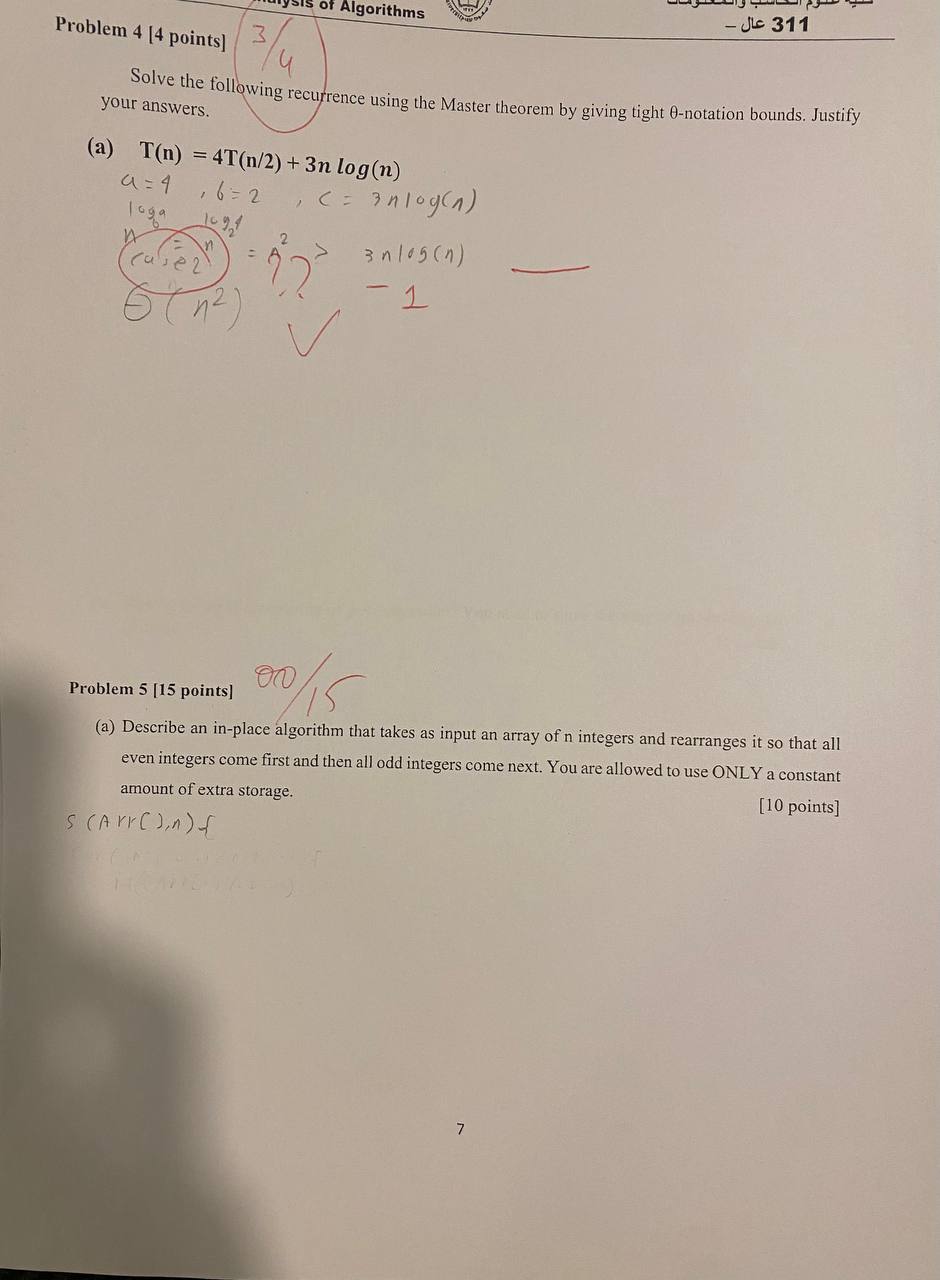 of Algorithms
311 عال –
Problem 4 [4 points] 3/4
Solve the following recurrence using the Master theorem by giving tight θ-notation bounds. Justify
your answers.
(a) T(n) = 4T(n/2) + 3n log(n)
a = 4 , b = 2 , c = 3nlog(n)
n^log_b a = n^log_2 4 = n^2 > 3nlog(n)
case 2 ??
- 1
Θ(n²)
Problem 5 [15 points] 00/15
(a) Describe an in-place algorithm that takes as input an array of n integers and rearranges it so that all
even integers come first and then all odd integers come next. You are allowed to use ONLY a constant
amount of extra storage.
[10 points]
S (Arr[],n){
7